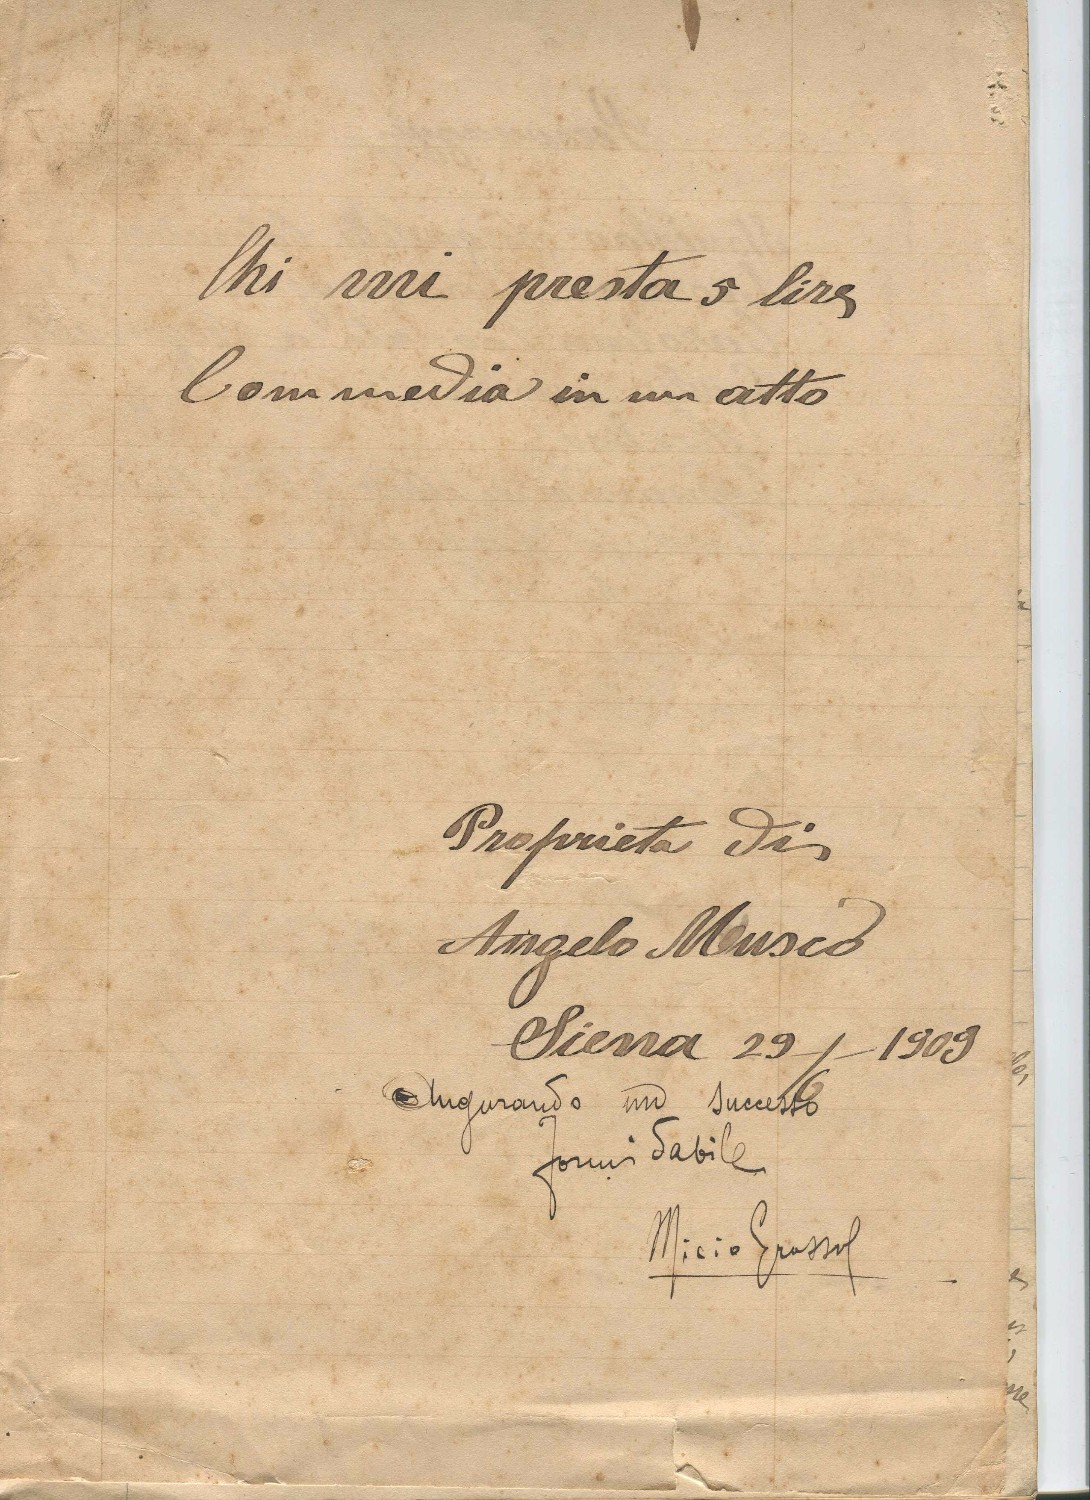 Chi mi presta 5 lire
Commedia in un atto
Proprieta di
Angelo Musco
Siena 29/6 1909
Augurando un successo
formidabile
Micio Grasso